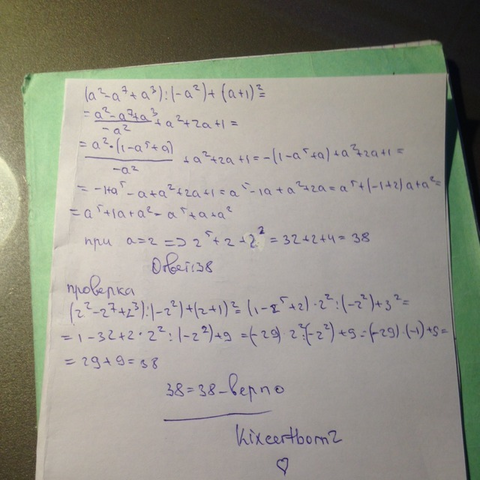 (a²-a⁷+a³):(-a²)+(a+1)²=
= a²-a⁷+a³ / -a² + a²+2a+1=
= a²·(1-a⁵+a) / -a² + a²+2a+1=-(1-a⁵+a)+a²+2a+1=
=-1+a⁵-a+a²+2a+1=a⁵-1a+a²+2a=a⁵+(-1+2)a+a²=
=a⁵+1a+a²=a⁵+a+a²
при a=2 => 2⁵+2+2²=32+2+4=38
Ответ:38
проверка
(2²-2⁷+2³):(-2²)+(2+1)²=(1-2⁵+2)·2²:(-2²)+3²=
=1-32+2·2²:(-2²)+9=(-29)·2²:(-2²)+9=(-29)·(-1)+9=
=29+9=38
38=38-верно